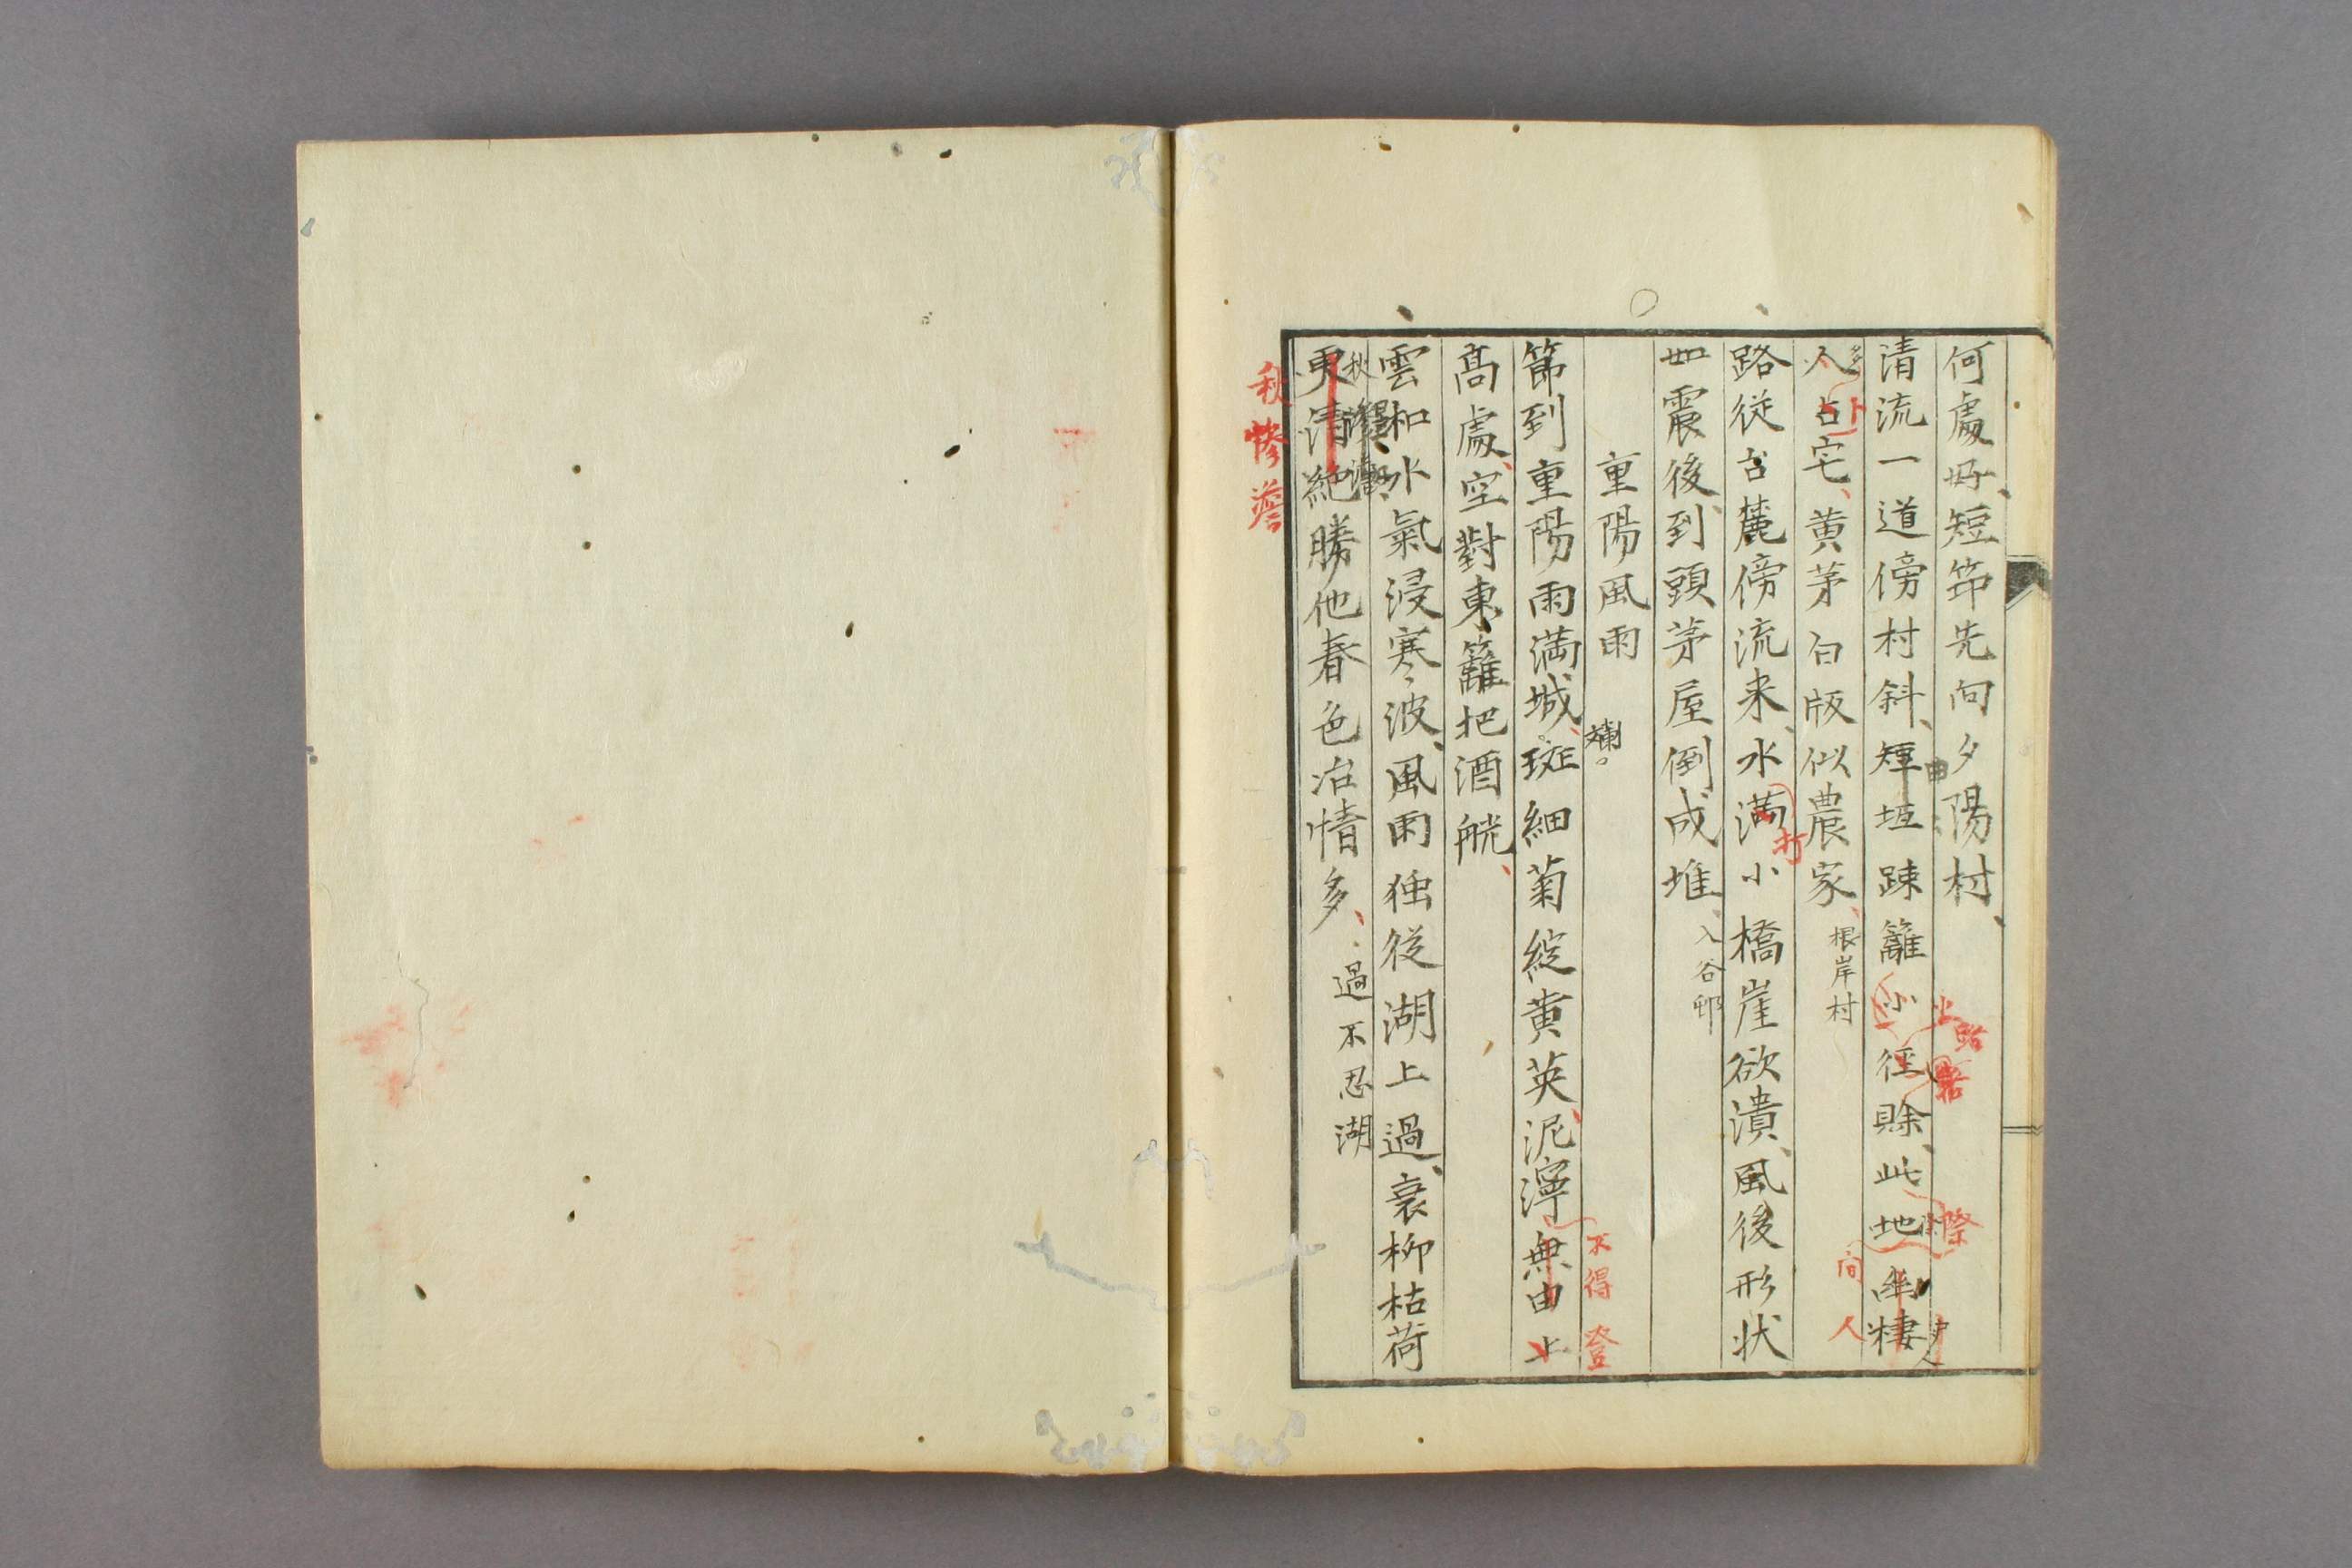 何處好短筇先向夕陽村
清流一道傍村斜短垣疎籬小徑賒此地幽棲
人占宅黄茅白版似農家 根岸村
路従台麓傍流来水満小橋崖欲潰風後形状
如震後到頭茅屋倒成堆 入谷邨
重陽風雨
節到重陽雨満城斑細菊綻黄英泥濘無由上
斕
不得登
高處空對東籬把酒觥
雲和水氣浸寒波風雨独従湖上過衰柳枯荷
更清絶勝他春色冶情多 過不忍湖
秋惨澹
卜
打
際
間人